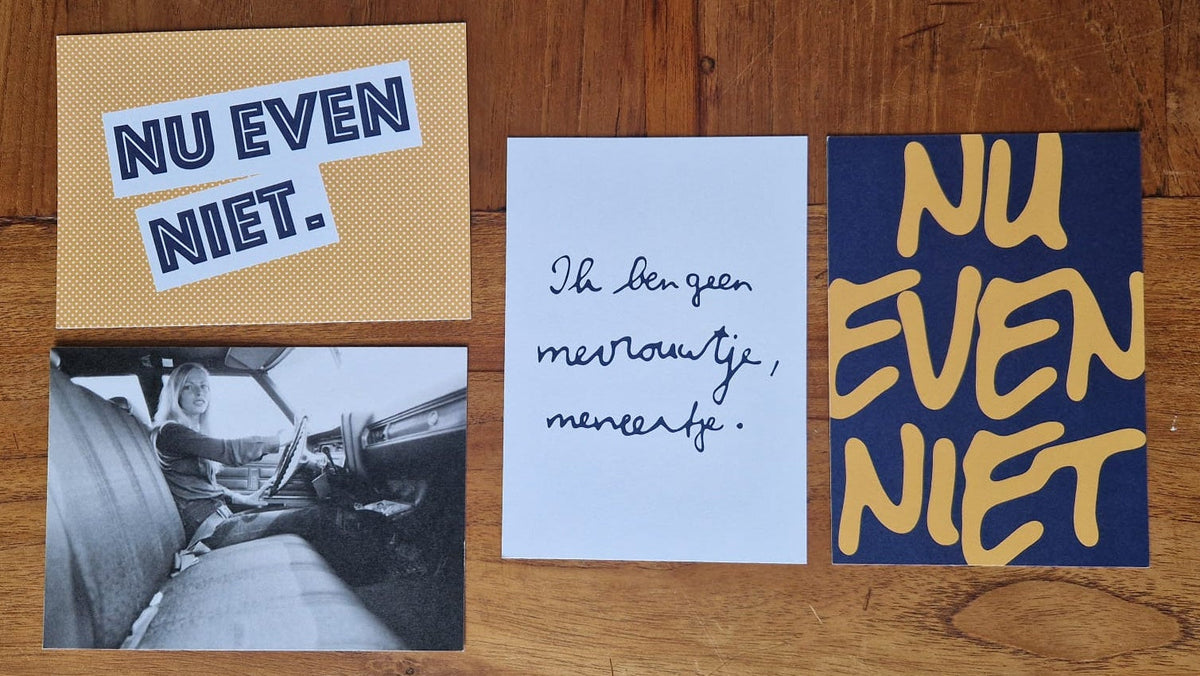 NU EVEN
NIET.
Ik ben geen
mevrouwtje,
meneertje.
NU
EVEN
NIET